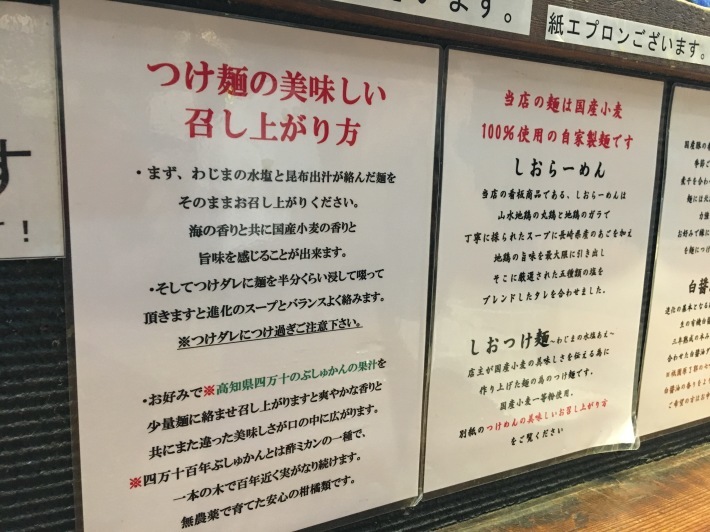 います。
紙エプロンございます。
す
！
つけ麺の美味しい
召し上がり方
・まず、わじまの水塩と昆布出汁が絡んだ麺を
そのままお召し上がりください。
海の香りと共に国産小麦の香りと
旨味を感じることが出来ます。
・そしてつけダレに麺を半分くらい浸して啜って
頂きますと進化のスープとバランスよく絡みます。
※つけダレにつけ過ぎご注意下さい。
・お好みで※高知県四万十のぶしゅかんの果汁を
少量麺に絡ませ召し上がりますと爽やかな香りと
共にまた違った美味しさが口の中に広がります。
※四万十百年ぶしゅかんとは酢ミカンの一種で、
一本の木で百年近く実がなり続けます。
無農薬で育てた安心の柑橘類です。
当店の麺は国産小麦
100%使用の自家製麺です
しおらーめん
当店の看板商品である、しおらーめんは
山水地鶏の丸鶏と地鶏のガラで
丁寧に採られたスープに長崎県産のあごを加え
地鶏の旨味を最大限に引き出し
そこに厳選された五種類の塩を
ブレンドしたタレを合わせました。
しおつけ麺～わじまの水塩あえ～
店主が国産小麦の美味しさを伝える為に
作り上げた麺の為のつけ麺です。
国産小麦一等粉使用。
別紙のつけめんの美味しいお召し上がり方
をご覧ください
国産豚の
季節ご
煮干を合わ
麺には北
力強
お好みで練に
を麺につけ
白醤
進化の基本となる
生の有機白醤
三年熟成の本み
合わせた白醤油ダ
白醤油の香りをより
ご希望の方はお申